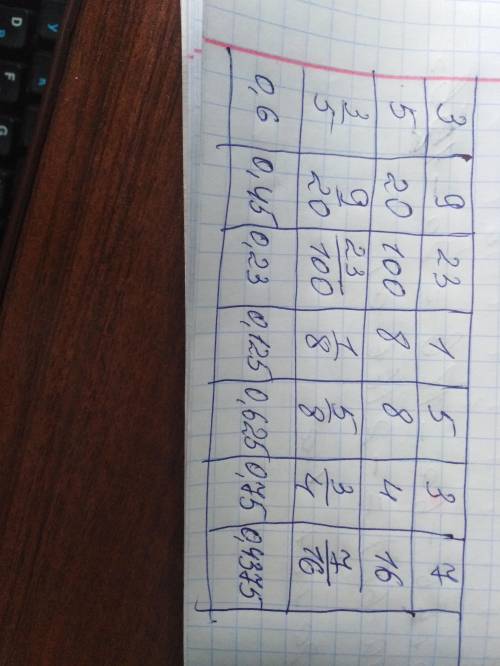 3 9 23 1 5 3 7
5 20 100 8 8 4 16
3/5 9/20 23/100 1/8 5/8 3/4 7/16
0,6 0,45 0,23 0,125 0,625 0,75 0,4375